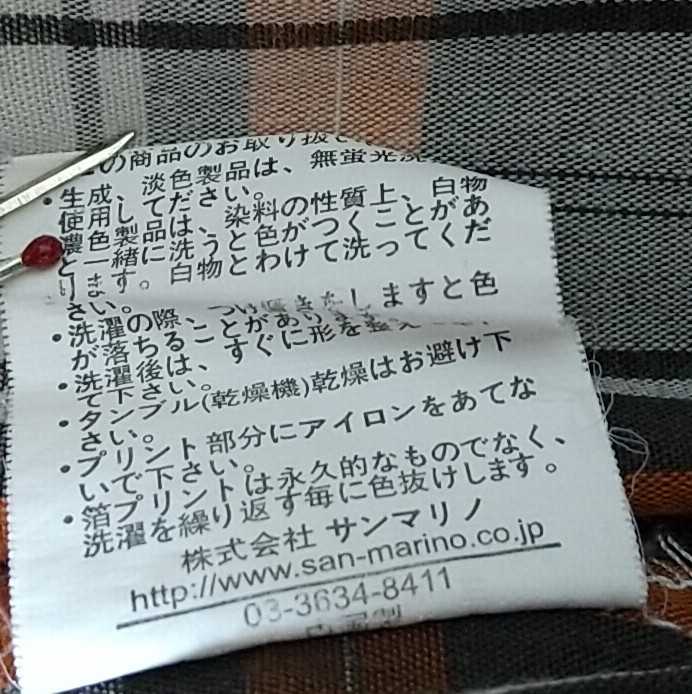 の商品のお取り扱
・生成、淡色製品は、無蛍光洗
使用してください。
濃色製品は、染料の性質上、白物
と一緒に洗うと色がつくことがあ
ります。白物とわけて洗ってくだ
さい。
・洗濯の際、つけ置きをしますと色
が落ちることがあります
・洗濯後は、すぐに形を整え
て下さい。
・タンブル(乾燥機)乾燥はお避け下
さい。
・プリント部分にアイロンをあてな
いで下さい。
・箔プリントは永久的なものでなく、
洗濯を繰り返す毎に色抜けします。
株式会社 サンマリノ
http://www.san-marino.co.jp
03-3634-8411